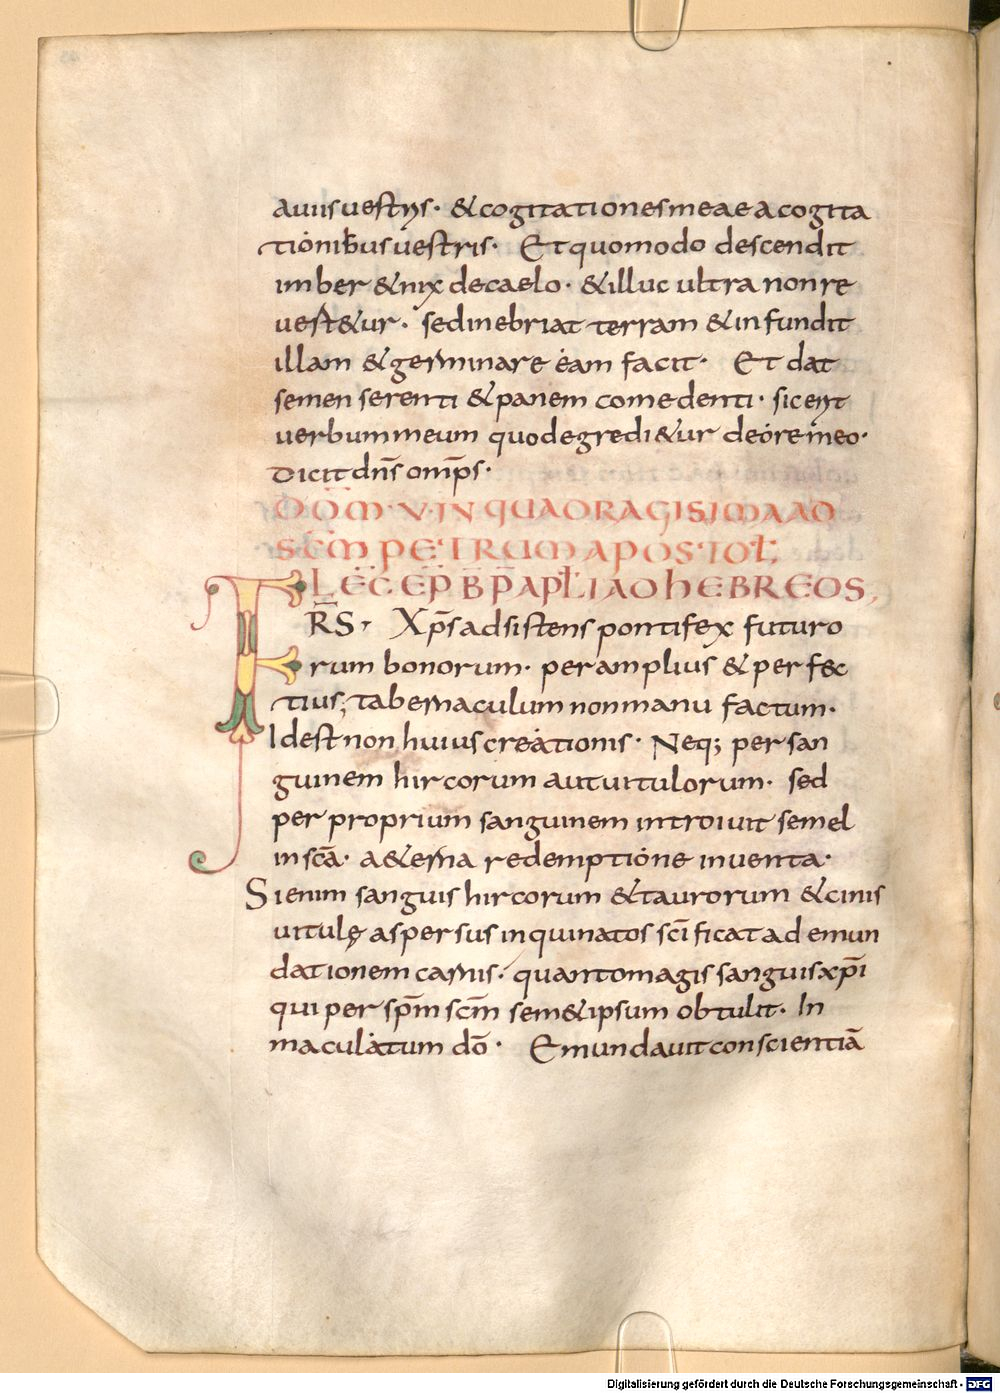 a uiis uestris · & cogitationes meae a cogita
tionib; uestris · Et quomodo descendit
imber & nix de caelo · & illuc ultra non re
uert&ur · sed inebriat terram & infundit
illam & germinare eam facit · Et dat
semen serenti & panem comedenti · sic erit
uerbum meum quod egredi&ur de ore meo ·
Dicit dn̄s omp̄s ·
DOM̄ · V · IN QUADRAGISIMA AD
SC̄M PETRUM APOSTOƚ;
LEC̄ EP̄ B̄ P̄ APƚI AD HEBREOS,
FRS̄ · Xp̄s adsistens pontifex futuro
rum bonorum · per amplius & perfec
tius; tabernaculum non manu factum ·
Id est non huius creationis · Neq; per san
guinem hircorum aut uitulorum · sed
per proprium sanguinem introiuit semel
in sc̄a · a&erna redemptione inuenta ·
Si enim sanguis hircorum & taurorum & cinis
uitulę aspersus inquinatos sc̄ificat ad emun
dationem carnis · quanto magis sanguis xp̄i
qui per sp̄m sc̄m sem&ipsum obtulit · In
maculatum dō · Emundauit conscientiā
Digitalisierung gefördert durch die Deutsche Forschungsgemeinschaft - DFG